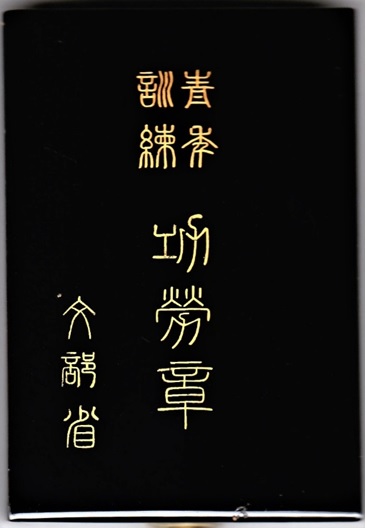 青年
訓練
功勞章
文部省